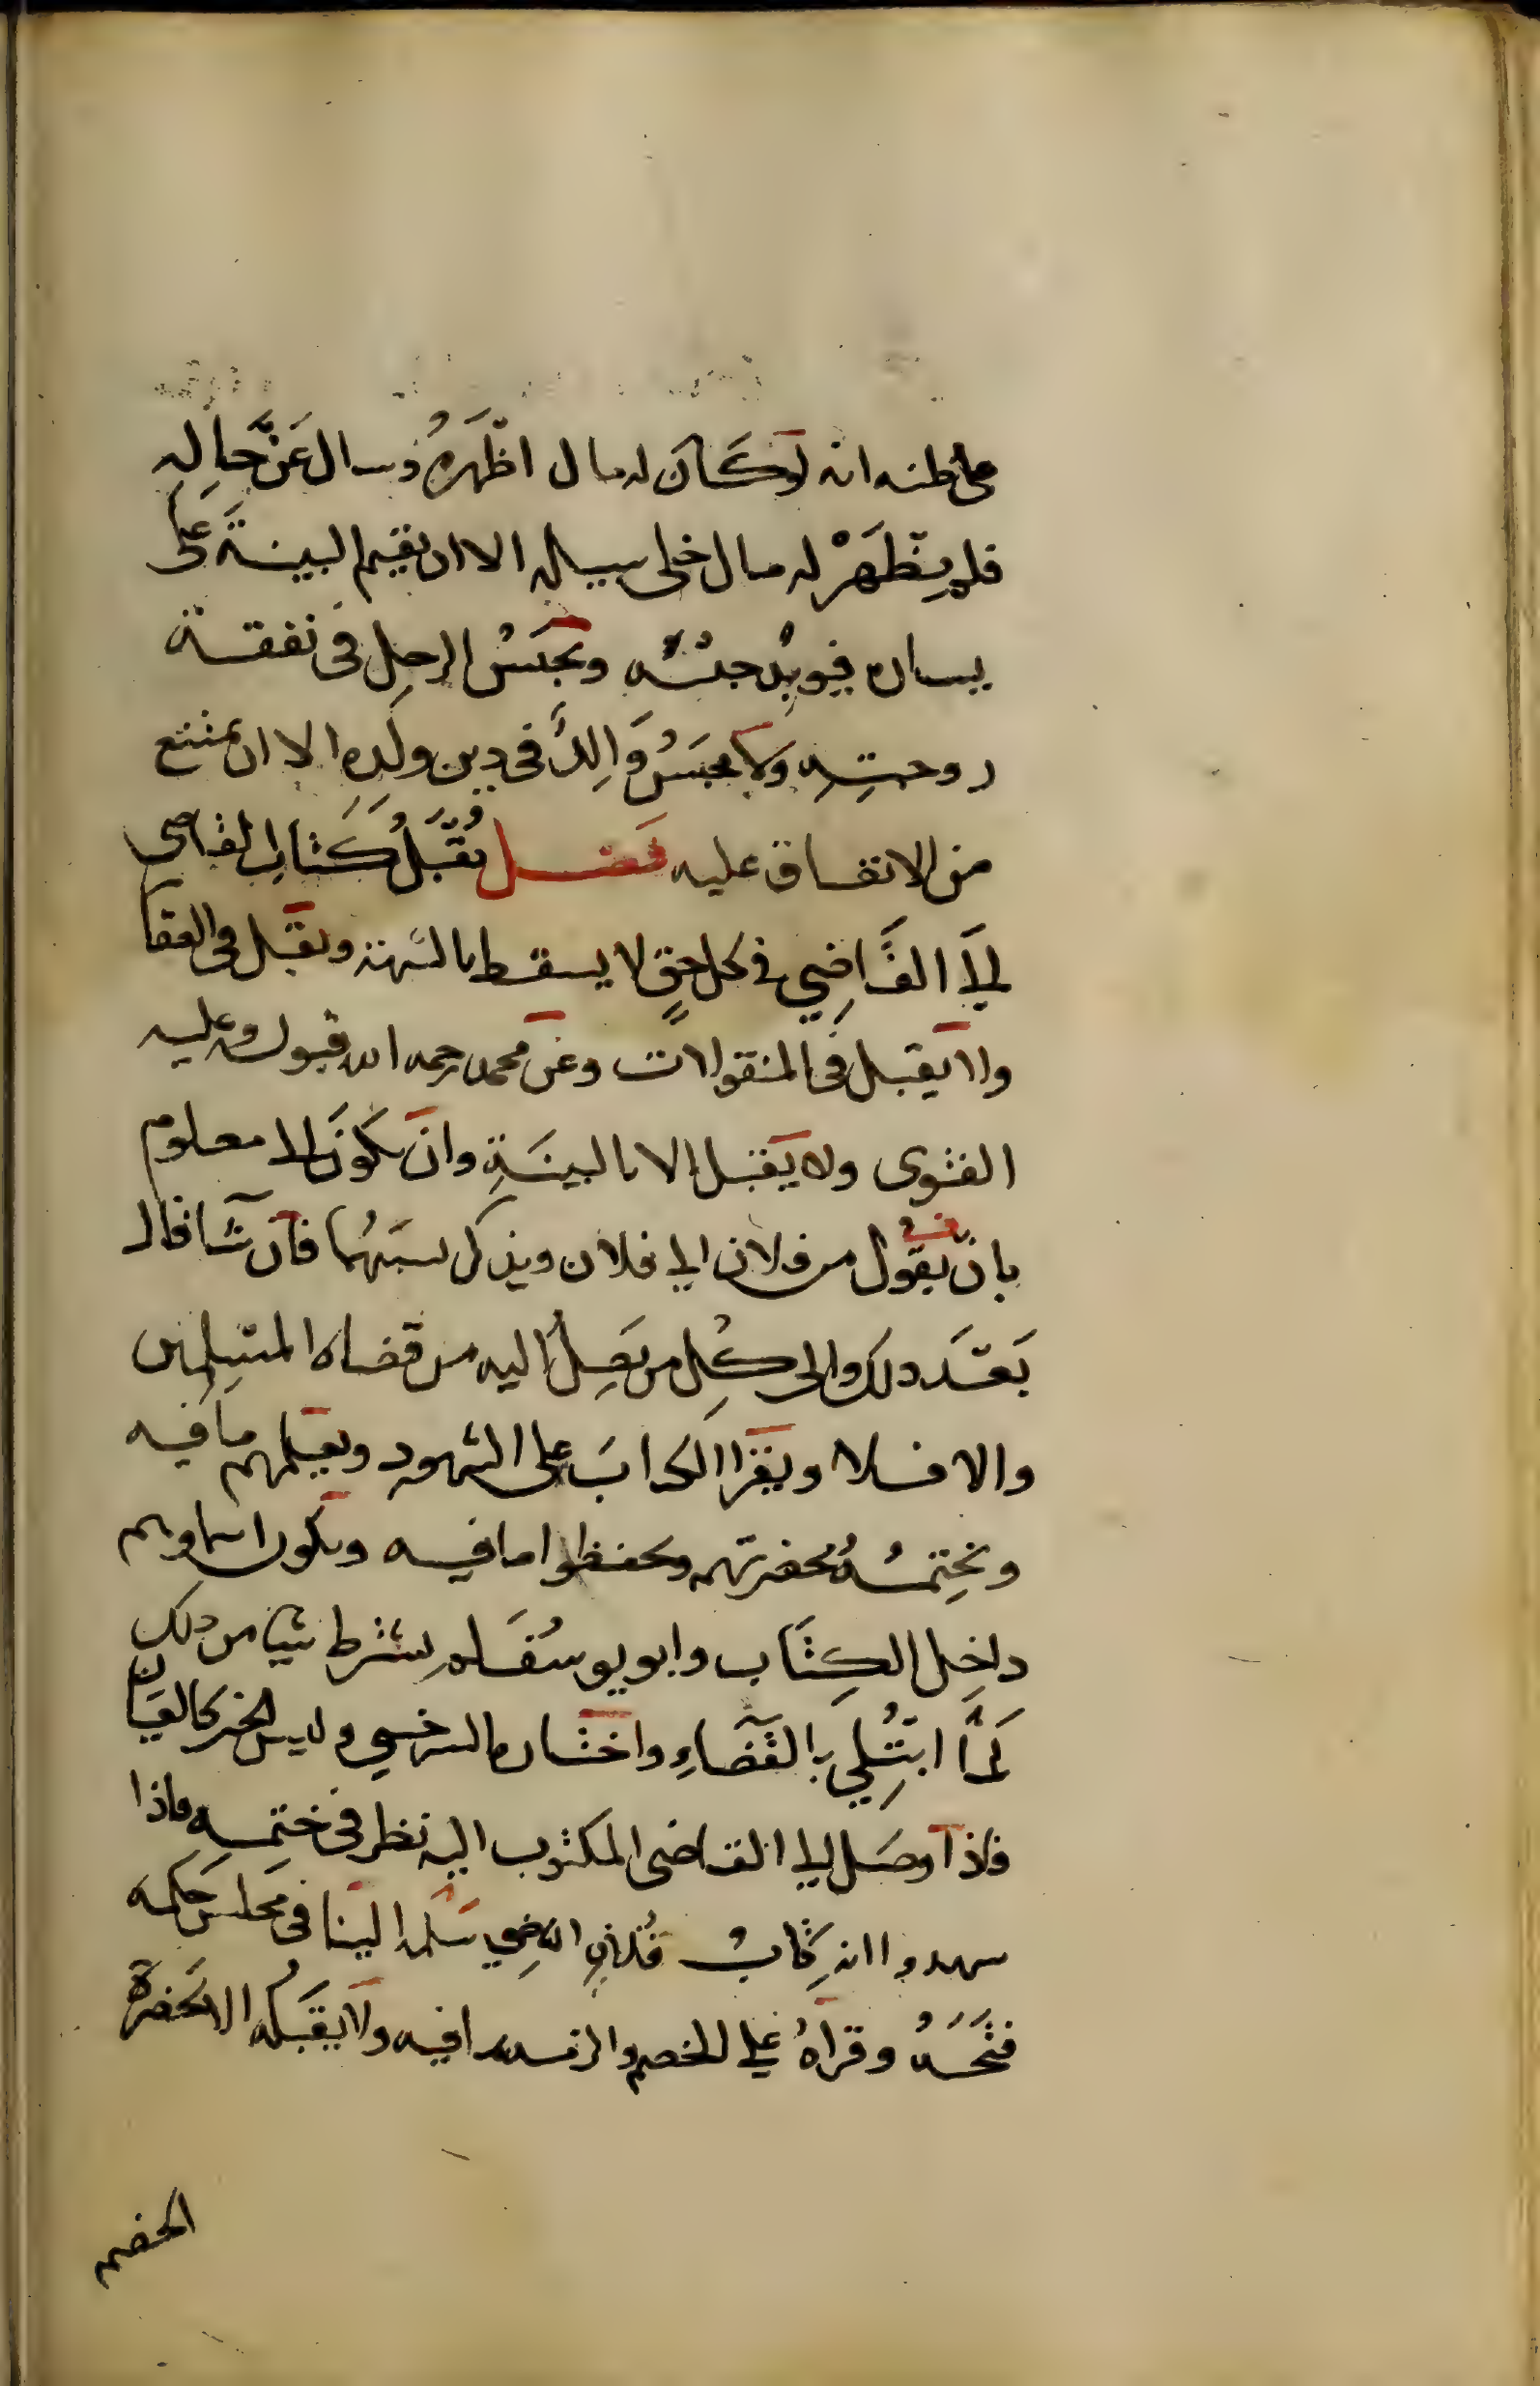 على ظنه انه لو كَانَ له مال اظْهَرَهُ وسال عَنْ حَالِهِ
فلم يَظْهَرْ له مال خلى سبيله الا ان يقيم البينة عَلَى
يساره فيوبد حبسُه ويُحْبَسُ الرجل فى نفقة
زوجتِهِ وَلا يحبسُ وَالِدٌ فى دين ولَدِهِ الا ان يمتنع
من الانفاق عليه فصل يُقْبَلُ كتاب القاضي
الى القَاضِي في كل حقٍ لا يسقط بالشبهة ويقبل في العقار
ولا يقبل في المنقولات وعن محمد رحمه الله قبوله وعليه
الفتوى ولا يقبل الا بالبينَةِ وان يكون الى معلوم
بان يقول من فلان الى فلان ويذكر نسبَهُما فان شا قال
بَعْدَ ذلك والى كُلِ من يَصِلُ اليه من قضاة المسلمين
والا فلا ويقرا الكتابَ على الشهود ويعلمهم ما فيه
ويَخْتِمُهُ بحضرتهم ويحفظوا ما فيه ويكون اسماوهم
داخِل الكِتَاب وابو يوسُف لم يشترط شيا من ذلك
لَمَّا ابْتُلِي بِالقَضَاءِ واختاره السرخسي وليس الخبر كالعيان
فاذا وصَل الى القاضى المكتوب اليه نظر فى ختمه فاذا
شهدوا انه كِتَابُ فُلانٍ القاضِي سَلمه الينا في مجلس حكمه
فتَحَهُ وقراهُ على الخصم والزمه ما فيه ولا يقبَلُه الا بحَضْرَة
الخصم